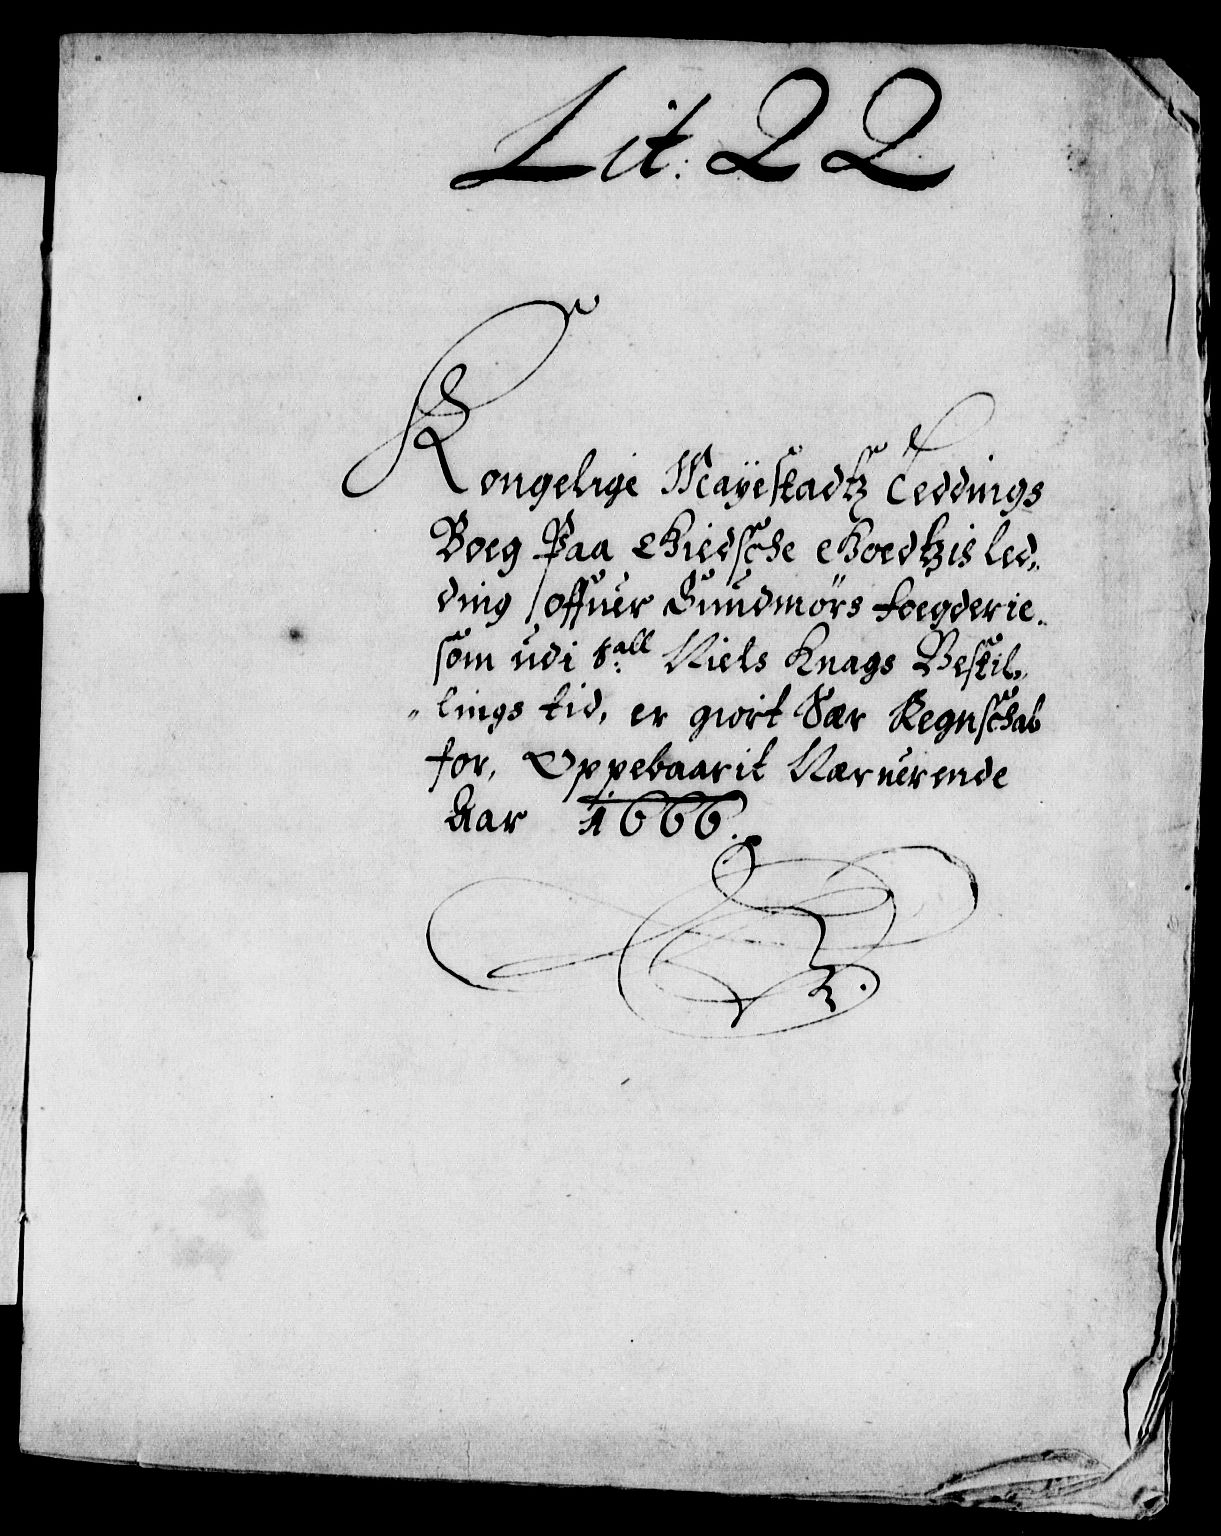 Lit: QQ
Kongelige Mayestadtz Leddings
Boeg Paa Giedsche Goedtzis led„
ding offuer Sundmørs foegderie„
som udi S:all Niels Knags Bestil„
„lings tid, er giort Sær Regnschab
for, Oppebaarit Næruerende
Aar 1666.